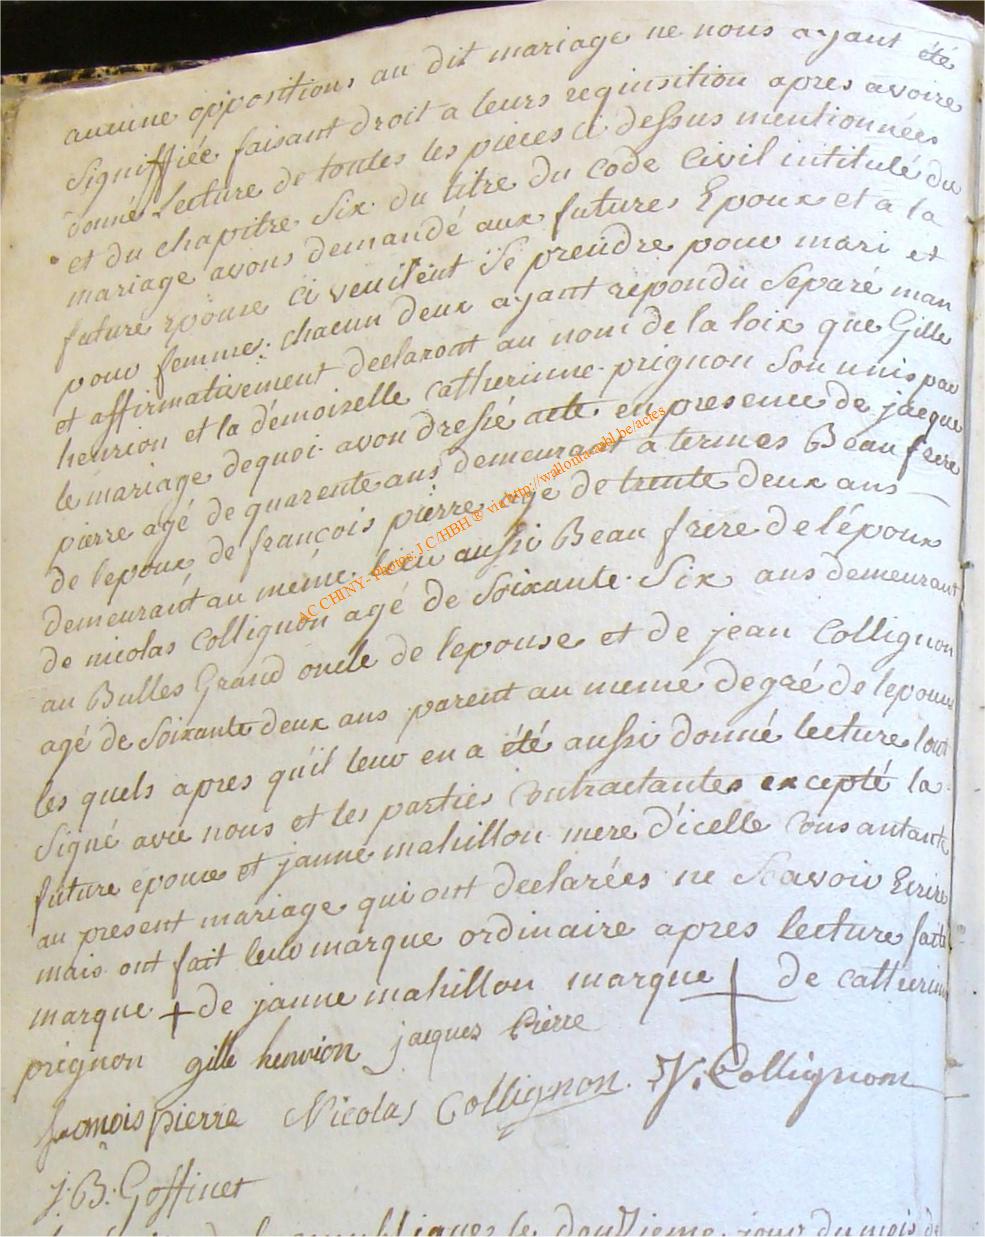 aucune oppositions au dit mariage ne nous ayant été
signiffiée faisant droit a leurs requisition apres avoire
donné lecture de toutes les pieces ci dessus mentionnées
et du chapitre six du titre du code Civil intitulé du
mariage avons demandé aux futures Epoux et a la
future epouse ci veuillent se prendre pour mari et
pour femme: chacun deux ayant repondu separé man
et affirmativement declaront au nom de la loix que Gille
henrion et la demoiselle catherinne prignon son unis par
le mariage dequoi avon dressé acte en presence de jacque
pierre agé de quarente ans demeurant a termes Beau frere
de lepoux de françois pierre age de trente deux ans
demeurant au même lieu aussi Beau frere de l'époux
de nicolas Collignon agé de soixante six ans demeurant
au Bulles Grand oncle de lepouse et de jean Collignon
agé de soixante deux ans parent au meme degré de lepouse
les quels apres qu'il leur en a été aussi donné lecture lont
signé avec nous et les parties contractantes excepté la
future epouse et janne mahillon mere d'icelle consantante
au present mariage qui ont declarées ne scavoir Ecrire
mais ont fait leur marque ordinaire apres lecture faite
marque + de janne mahillon marque + de catherine
prignon gille henrion jacques Pierre
francois pierre Nicolas Collignon J. Collignon
J: B: Goffinet
douzieme jour du mois de
AC CHINY - Photos: J C/HBH ® via http://wallonia.cabl.be/actes